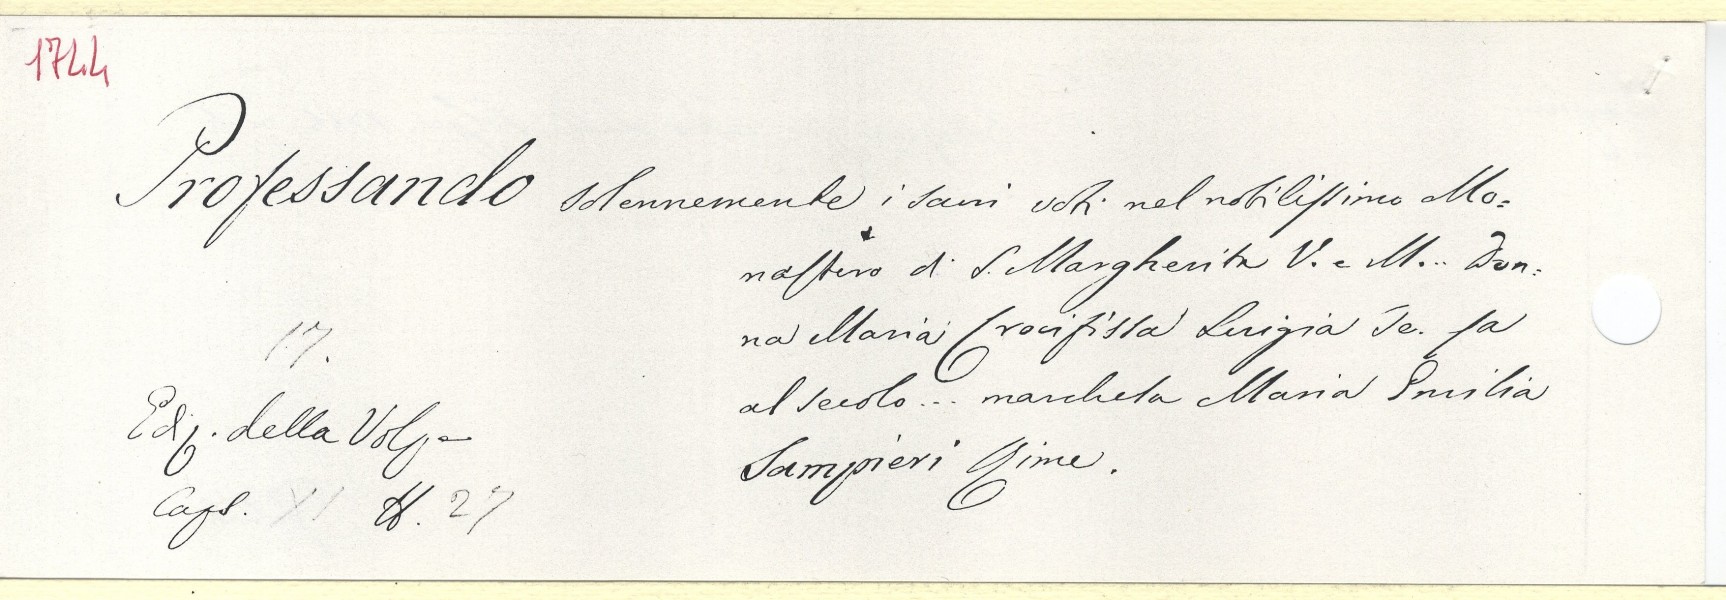 1744
Professando solennemente i sacri voti nel nobilissimo Mo=
nastero di S. Margherita V. e M... Don=
na Maria Crocifissa Luigia Te. fa
al secolo... marchesa Maria Emilia
Sampieri Rime.
17.
Ediz. della Volpe
Caps. XI N. 27